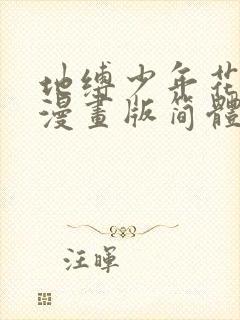 地缚少年花
漫畫版简體
汪暉